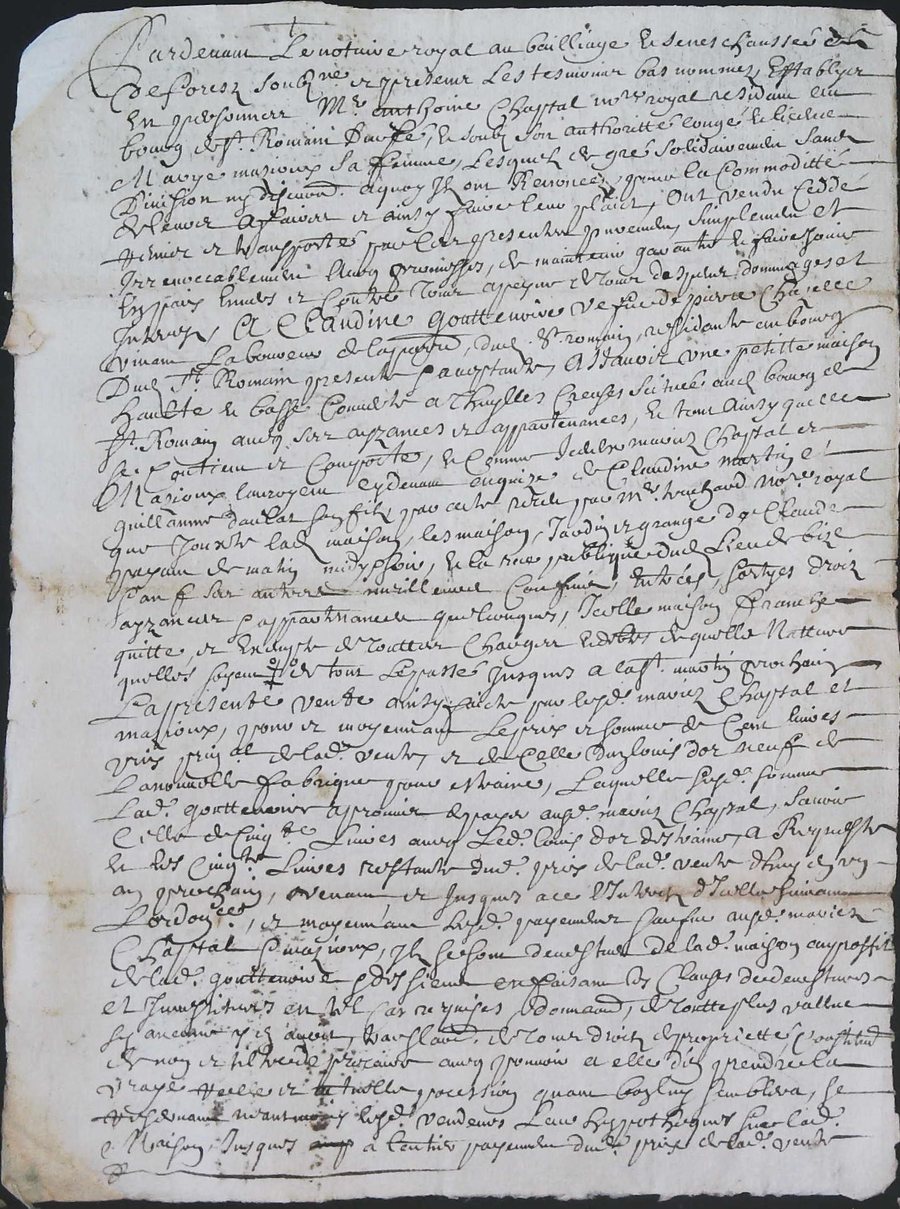 Pardevant Le notaire royal au bailliage & seneschaussée de
de forestz soubzne et presentz Les tesmoins bas nommez Establys
En personnes Mre anthoine Chaptal nore royal residant au
bourg de St Romain & soubz son authoritté congé & licence
Marye mazioux sa femme, Lesquelz de gré solidairement sans
Division ny discution a quoy Ilz ont Renoncé, pour la Commoditté
de leurs affaires et ainsy faire leur plaict, Ont vendu Ceddé
remis et transporté par ces presentes purement simplement et
Irrevocablement avec promesses, de maintenir garantir & faire jouir
Envers touts et Contre touts a peyne de touts despens dommages et
Interestz, A Claudine gouttenoire vefve de pierre Chazelle
vivant Laboureur de la parr. dud. St romain, residante au bourg
Dud St Romain presente Laceptante, a Sçavoir une petitte maison
haulte & basse Couverte a thuylles Creuses scituée aud bourg de
St Romain avecq ses ayzances et appartenances, & tout ainsy quelle
se Contient et Comporte, & Comme Iceulx mariez Chaptal et
Mazioux lauroyent cydevant acquize de Claudine martin et
guillaume son filz, par acte receu par Me nore royal
que Jouxte lad maison, les maison, Jardin et grange de Claude
payant de matin midy soir, & la rue publique dud Lieu de bize
sauf ses autres meilleures Confins, entrées, sortyes droitz
ayzances & appartenances quelconques, Icelle maison franche
quitte, et de touttes Charges & debtes de quelle Natture
quelles soyent de tout Le passé Jusques a la St martin prochain
La presente vente ainsy faicte par lesd. mariez Chaptal et
mazioux, pour et moyennant Le prix et somme de Cent livres
prix prinal de lad. vente, et de Celle Dun Louis dor neuf de
La nouvelle fabrique pour estraine, Laquelle susd. somme
Lad. gouttenoire a promis de payer ausd. mariez Chaptal, sçavoir
Celle de Cinqte Livres avecq Led. Louis dor destraine, a Requeste
& les Cinqte Livres restante dud. prix de lad. vente dhuy en un
an prochain, venant et Jusques a ce l'Interest d'Icelle suivant
Lordonce, et moyennant Lesd. payement faict ausd. mariez
Chaptal & mazioux, Ilz se sont devestus de lad. maison au proffit
de lad. gouttenoire & des siens en faisant les Clauses de devestures
et Investitures en tel cas requises & donnant, de toutte plus vallue
sy aucune y en avoit, de tous droitz de proprietté Constitut
de nom et tiltre de precaire avecq pouvoir a elle den prendre la
vraye reelle et actuelle pocession quant bon luy semblera, se
reservant neantmoins lesd. vendeurs Leur hyppotheque sur lad.
Maison Jusques a lentier payement dud. prix de lad. vente